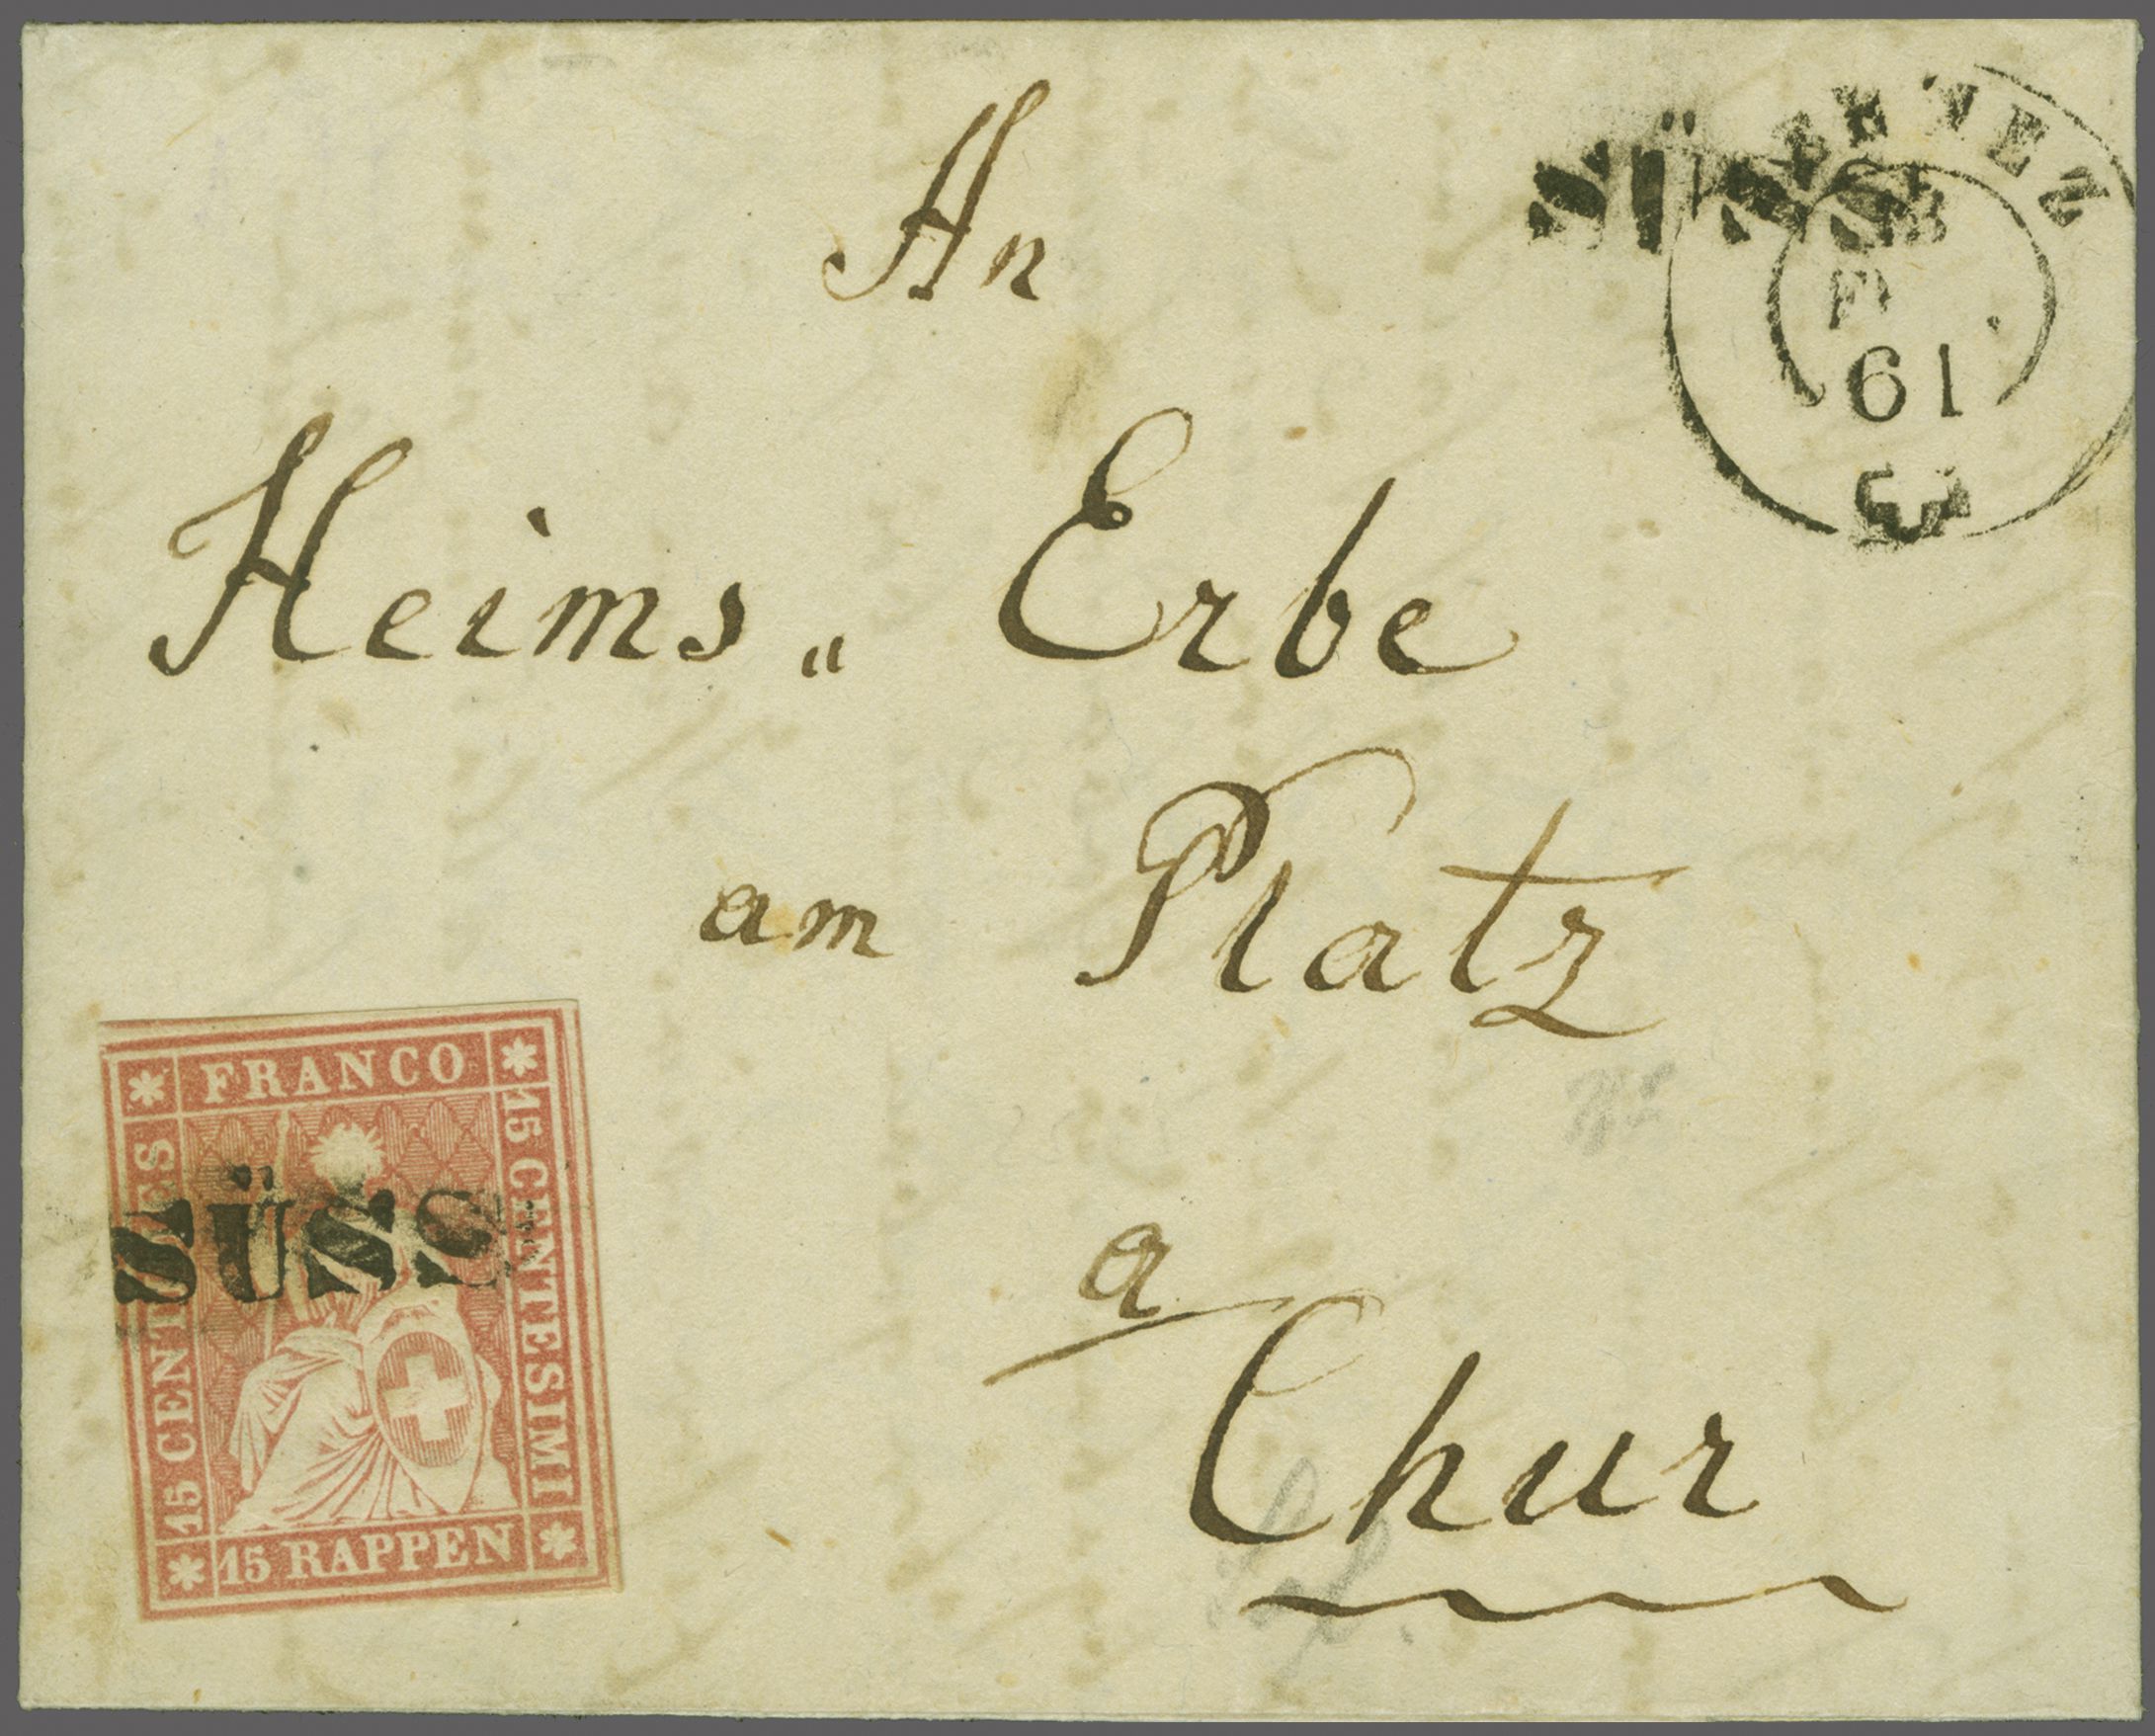 An
SÜSS
61
Heims „ Erbe
am Platz
FRANCO
15 CENTESIMI
15 CENTIMES
15 RAPPEN
SÜSS
a
Chur